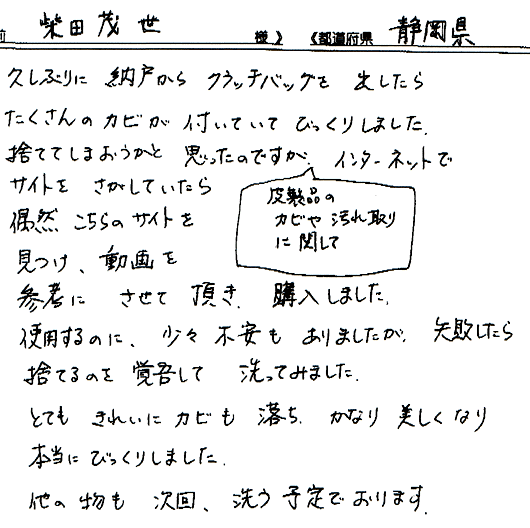 前 柴田茂世 様》 《都道府県 静岡県
久しぶりに 納戸から クラッチバッグを 出したら
たくさんの カビが 付いていて びっくりしました.
捨ててしまおうかと 思ったのですが. インターネットで
サイトを さがしていたら
皮製品の
カビや 汚れ取り
に 関して
偶然 こちらの サイトを
見つけ、動画を
参考に させて 頂き. 購入しました.
使用するのに、少々 不安も ありましたが. 失敗したら
捨てるのを 覚悟して 洗ってみました.
とても きれいに カビも 落ち. かなり 美しくなり
本当に びっくりしました.
他の 物も 次回、洗う 予定で おります.